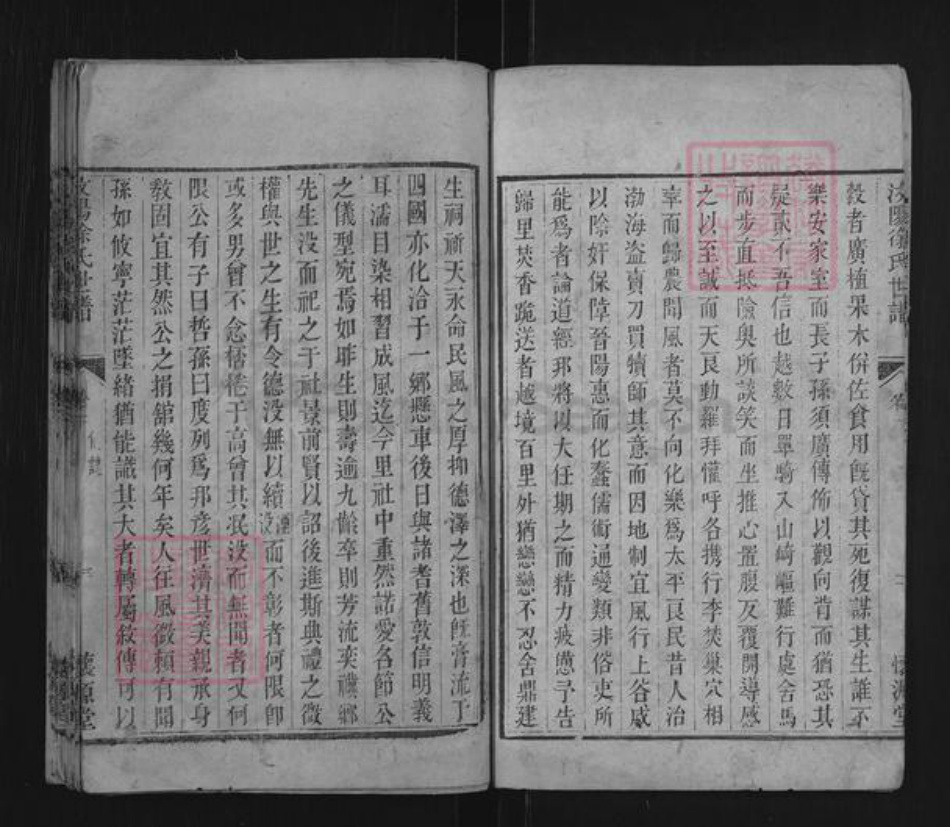 汝陽徐氏世譜
懷源堂
穀者廣植果木併佐食用旣貸其死復謀其生誰不
樂安家室而長子孫須廣傳佈以觀向背而猶恐其
疑貳不吾信也越數日單騎入山崎嶇難行處舍馬
而步直抵險奧所談笑而坐推心置腹反覆開導感
之以至誠而天良動羅拜懽呼各携行李焚巢穴相
率而歸農聞風者莫不向化樂爲太平良民昔人治
渤海盜賣刀買犢師其意而因地制宜風行上谷威
以除奸保障晉陽惠而化蠢儒術通變類非俗吏所
能爲者論道經邦將以大任期之而精力疲憊予告
歸里焚香跪送者越境百里外猶戀戀不忍舍鼎建
生祠祈天永命民風之厚抑德澤之深也旣膏流于
四國亦化洽于一鄉懸車後日與諸耆舊敦信明義
耳濡目染相習成風迄今里社中重然諾愛名節公
之儀型宛焉如昨生則壽逾九齡卒則芳流奕禩鄉
先生没而祀之于社景前賢以詔後進斯典禮之微
權與世之生有令德没無以續湮没而不彰者何限卽
或多男曾不念桮棬于高曾其泯没而無聞者又何
限公有子曰哲孫曰度列爲邦彦世濟其美親承身
敎固宜其然公之捐舘幾何年矣人往風微賴有聞
孫如攸寧茫茫墜緒猶能識其大者轉屬敘傳可以
汝陽徐氏世譜
三
懷源堂